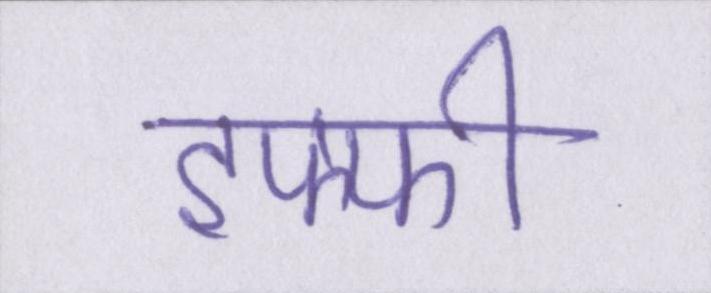 इफ्फी